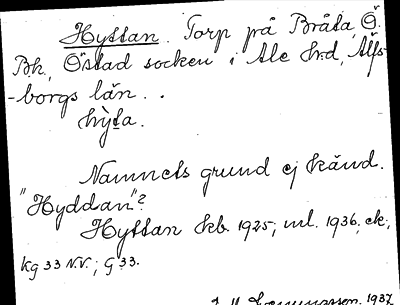 Hyttan. Torp på Bråta, Ö.
Bh, Östad socken i Ale hrd, Älfs-
-borgs län. .
hỳta.
Namnets grund ej känd.
"Hyddan"?
Hyttan kb. 1925; ml. 1936, ek;
kg 33 N.V.; G 33.
1937